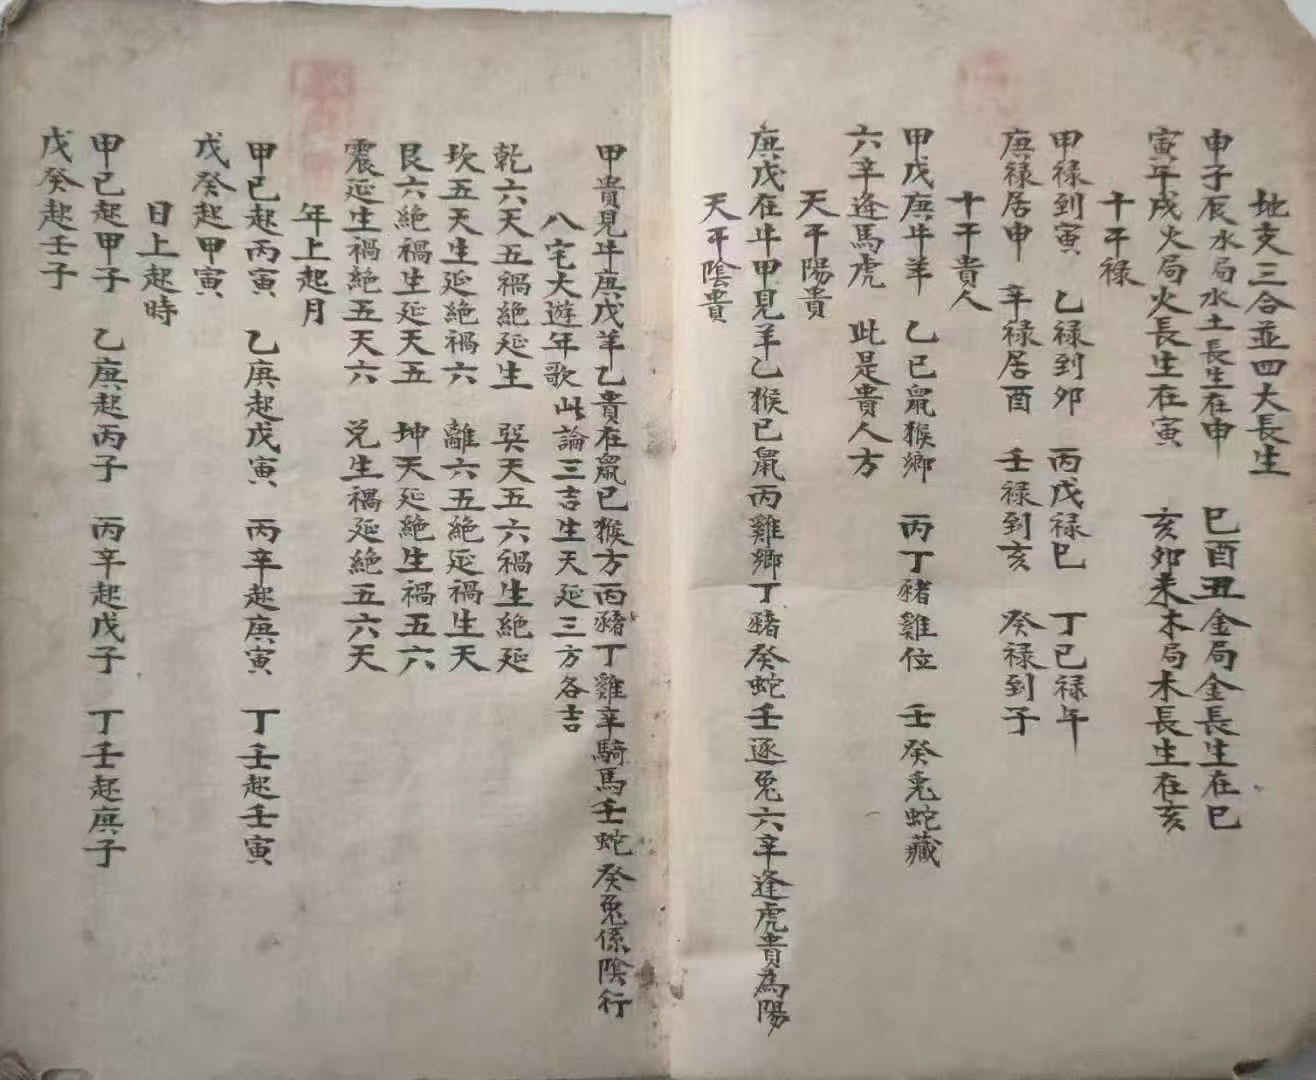 地支三合並四大長生
申子辰水局水土長生在申 巳酉丑金局金長生在巳
寅午戌火局火長生在寅 亥卯未木局木長生在亥
十干禄
甲禄到寅 乙禄到卯 丙戊禄巳 丁己禄午
庚禄居申 辛禄居酉 壬禄到亥 癸禄到子
十干貴人
甲戊庚牛羊 乙已鼠猴鄉 丙丁豬雞位 壬癸兎蛇藏
六辛逢馬虎 此是貴人方
天干陽貴
庚戊在牛甲見羊乙猴已鼠丙雞鄉丁豬癸蛇壬逐兔六辛逢虎貴為陽
天干陰貴
甲貴見牛庚戊羊乙貴在鼠已猴方丙豬丁雞辛騎馬壬蛇癸兔係陰行
八宅大遊年歌此論三吉生天延三方各吉
乾六天五禍絶延生 巽天五六禍生絶延
坎五天生延絶禍六 離六五絶延禍生天
艮六絶禍生延天五 坤天延絶生禍五六
震延生禍絶五天六 兑生禍延絶五六天
年上起月
甲已起丙寅 乙庚起戊寅 丙辛起庚寅 丁壬起壬寅
戊癸起甲寅
日上起時
甲已起甲子 乙庚起丙子 丙辛起戊子 丁壬起庚子
戊癸起壬子